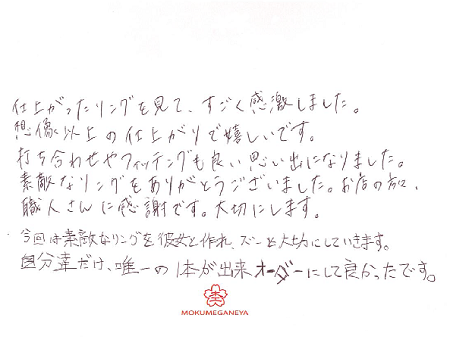 仕上がったリングを見て、すごく感激しました。
想像以上の仕上がりで嬉しいです。
打ち合わせやフィッティングも良い思い出になりました。
素敵なリングをありがとうございました。お店の方、
職人さんに感謝です。大切にします。
今回は素敵なリングを彼女と作れ、ズーと大切にしていきます。
自分達だけ、唯一の1本が出来オーダーにして良かったです。
MOKUMEGANEYA